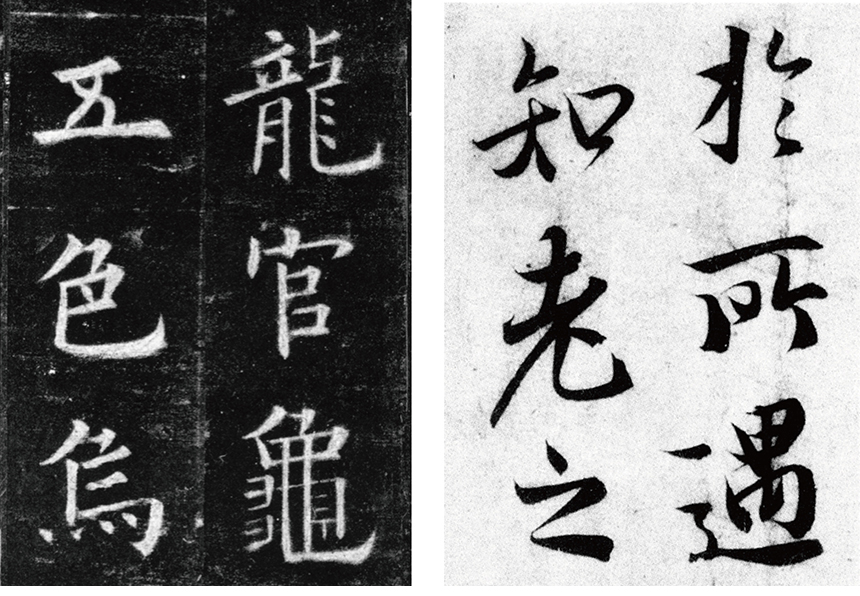 龍官龜
五色烏
於所遇
知老之